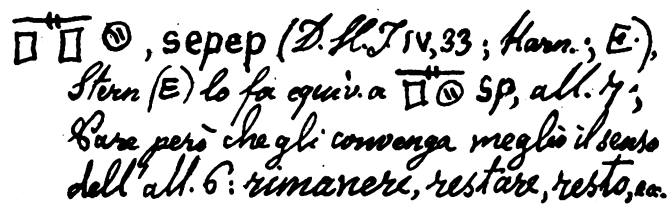 , sepep (D.H.I IV, 33 ; Harn. ; E.),
Stern (E) lo fa equiv. a sp, all. 7 ;
Pare però che gli convenga meglio il senso
dell'all. 6 : rimanere, restare, resto, ecc.